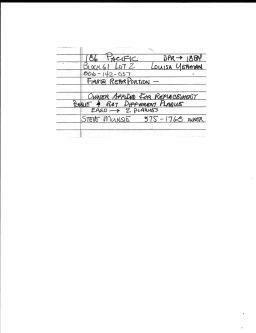 186 PACIFIC DPR → 1884
BLOCK 61 LOT 2 LOUISA YEAMAN
006-142-037
REAR PORTION —
OWNER APPLIED FOR REPLACEMENT
& GET DIFFERENT PLAQUE
→ 2 PLAQUES
STEVE 375-1768 OWNER